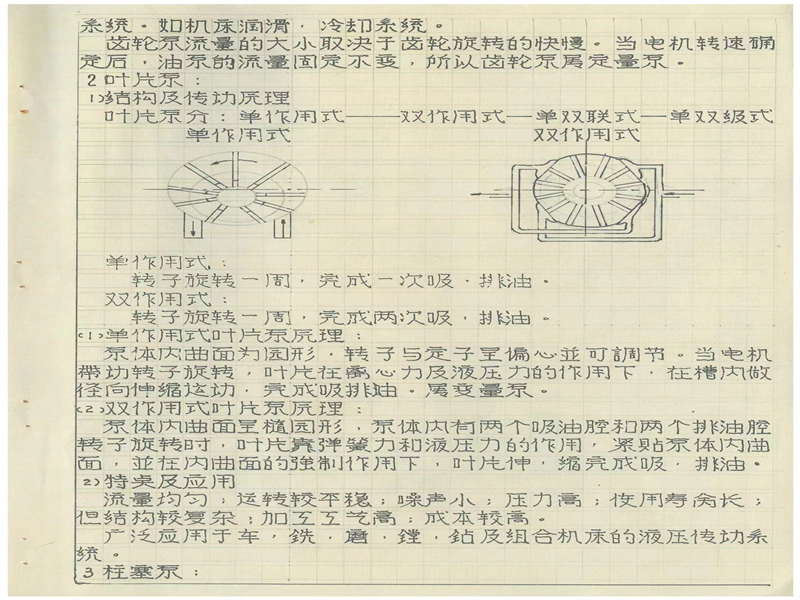 系统。如机床润滑，冷却系统。
齿轮泵流量的大小取决于齿轮旋转的快慢。当电机转速确
定后，油泵的流量固定不变，所以齿轮泵属定量泵。
2 叶片泵：
1)结构及传动原理
叶片泵分：单作用式——双作用式—单双联式—单双级式
单作用式 双作用式
单作用式：
转子旋转一周，完成一次吸、排油。
双作用式：
转子旋转一周，完成两次吸，排油。
(1)单作用式叶片泵原理：
泵体内曲面为园形，转子与定子呈偏心並可調节。当电机
帶动转子旋转，叶片在离心力及液压力的作用下，在槽内做
径向伸缩运动，完成吸排油。属变量泵。
(2)双作用式叶片泵原理：
泵体内曲面呈椭园形，泵体内有两个吸油腔和两个排油腔
转子旋转时，叶片靠弹簧力和液压力的作用，紧贴泵体内曲
面，並在内曲面的強制作用下，叶片伸，缩完成吸，排油。
2)特奌及应用
流量均匀；运转较平稳；噪声小；压力高；使用寿命长；
但结构较复杂；加工工艺高；成本较高。
广泛应用于车，銑，磨，鏜，鉆及组合机床的液压传动系
统。
3 柱塞泵：